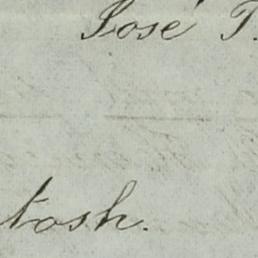 José T.
tosh.